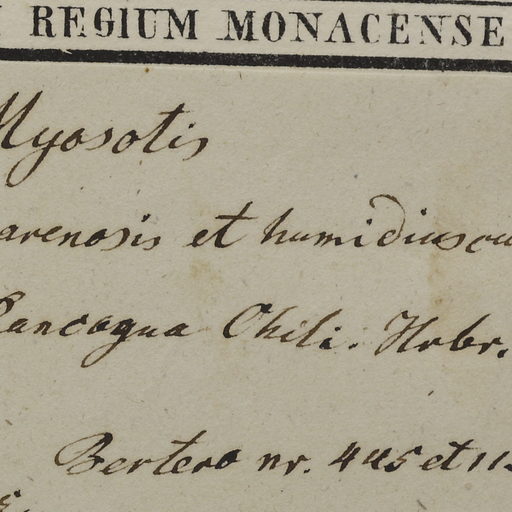 REGIUM MONACENSE
Myosotis
arenosis et humidiuscu
Rancagua Chili. Hrbr.
Bertero nr. 445 et 11